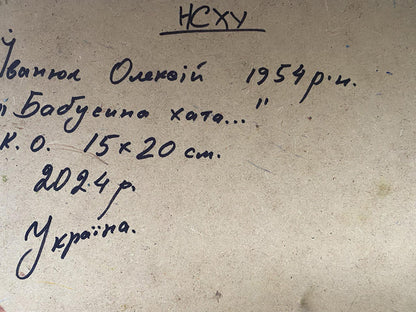 НСХУ
Іванюк Олексій 1954 р.н.
і Бабусина хата..."
к. о. 15х20 см.
2024 р.
Україна.